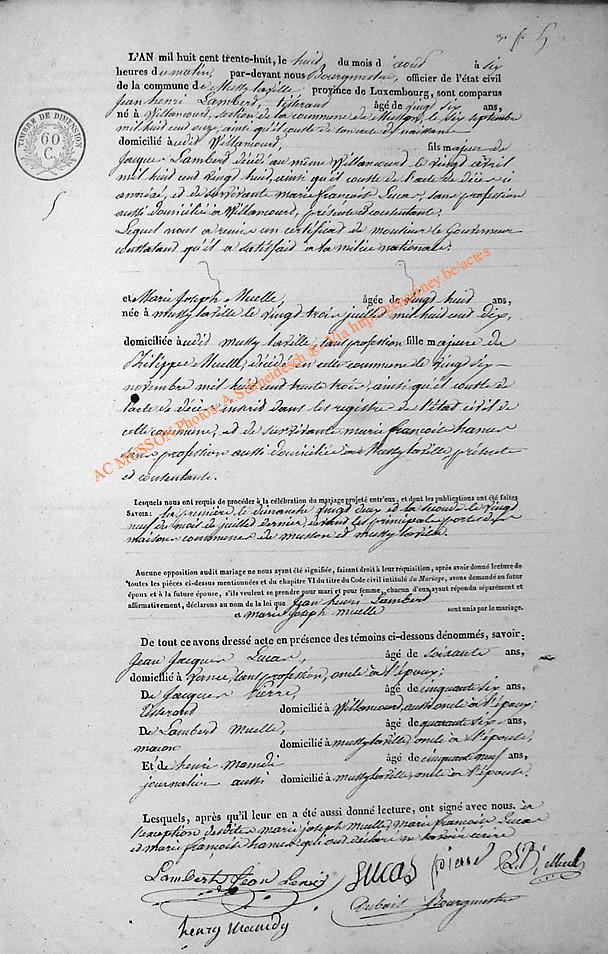 L'AN mil huit cent trente-huit, le huit du mois d'aout à six
heures du matin, par-devant nous Bourgmestre, officier de l'état civil
de la commune de Mussy la ville province de Luxembourg, sont comparus
Jean henri Lambert, tisserand âgé de vingt six ans,
né à Willancourt, section de la commune de Musson, le six septembre
mil huit cent onze, ainsi qu'il conste de son acte de naissance
domicilié audit Willancourt, fils majeur de
Jacques Lambert décédé au même Willancourt le vingt avril
mil huit cent vingt huit, ainsi qu'il conste de l'acte de décès ci
annéxé, et de survivante marie françoise Lucas, sans profession
aussi domiciliée à Willancourt, présente et contentante.
Lequel nous a remis un certificat de monsieur le Gouverneur
constatant qu'il a satisfait à la milice nationale.
et Marie Joseph Muelle, âgée de vingt huit ans,
née à mussy la ville le vingt trois juillet mil huit cent dix,
domiciliée audit mussy la ville sans profession fille majeure de
Philippe Muelle, décédé en cette commune le vingt six
novembre mil huit cent trente trois, ainsi qu'il conste de
l'acte de décès inscrit dans les registres de l'état civil de
cette commune, et de survivante marie françoise
sans profession aussi domiciliée à Mussy la ville, présente
et contentante.
Lesquels nous ont requis de procéder à la célébration du mariage projeté entr'eux, et dont les publications ont été faites
SAVOIR: la première le dimanche vingt deux et la seconde le vingt
neuf du mois de juillet dernier, devant les principales portes des
maisons communes de musson et mussy la ville.
Aucune opposition audit mariage ne nous ayant été signifiée, faisant droit à leur réquisition, après avoir donné lecture de
toutes les pièces ci-dessus mentionnées et du chapitre VI du titre du Code civil intitulé du Mariage, avons demandé au futur
époux et à la future épouse, s'ils veulent se prendre pour mari et pour femme, chacun d'eux ayant répondu séparément et
affirmativement, déclarons au nom de la loi que Jean henri Lambert
et marie Joseph muelle sont unis par le mariage.
De tout ce avons dressé acte en présence des témoins ci-dessous dénommés, savoir:
Jean Jacques Lucas, âgé de soixante ans,
domicilié à sans profession, oncle à l'époux;
De Jacques Pierre âgé de cinquante six ans,
tisserand domicilié à Willancourt, aussi oncle à l'époux;
De Lambert Muelle, âgé de quarante six ans,
macon domicilié à mussy la ville, oncle à l'épouse
Et de henri mamdi âgé de cinquante neuf ans,
journalier aussi domicilié à mussy la ville, oncle à l'épouse.
Lesquels, après qu'il leur en a été aussi donné lecture, ont signé avec nous. à
l'exception desdites marie joseph muelle, marie françoise Lucas
et marie françoise qui ont déclaré ne savoir écrire
Lambert Jean henri Lucas pierre
Dubois Bourgmestre
henry mamdy
TIMBRE DE DIMENSION
60
C.
AC MUSSON Photos: A. Schneidesch